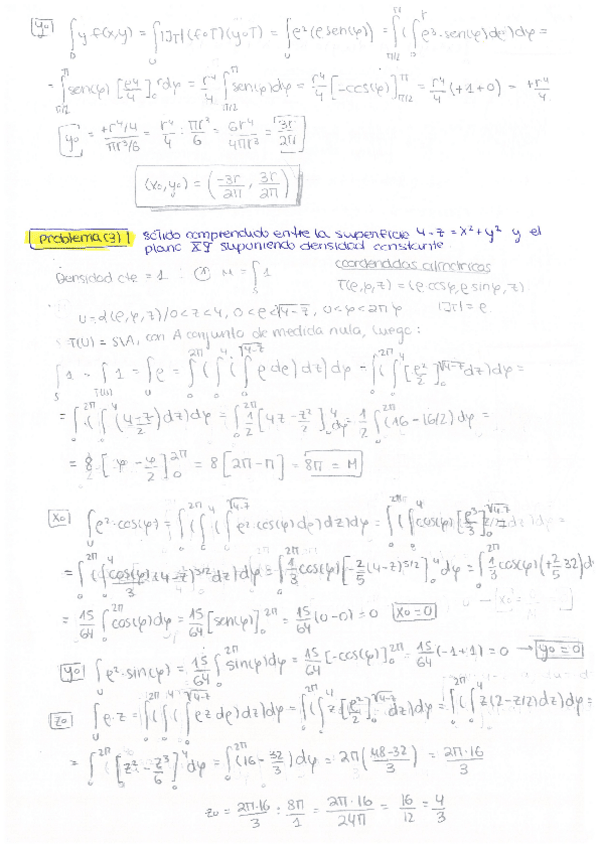 y₀ ∫_D y·f(x,y) = ∫_U |JT| (f∘T)(y∘T) = ∫_U ρ²(ρ sen(φ)) = ∫_{π/2}^π (∫_0^r ρ³·sen(φ) dρ) dφ =
= ∫_{π/2}^π sen(φ) [ρ⁴/4]_0^r dφ = r⁴/4 ∫_{π/2}^π sen(φ)dφ = r⁴/4 [-cos(φ)]_{π/2}^π = r⁴/4 (+1+0) = +r⁴/4
y₀ = (+r⁴/4)/(πr³/6) = r⁴/4 : πr³/6 = 6r⁴/4πr³ = 3r/2π
(x₀,y₀) = (-3r/2π, 3r/2π)
Problema(3) sólido comprendido entre la superficie 4-z = x²+y² y el
plano XY suponiendo densidad constante.
Densidad cte = 1 : ① M = ∫_S 1 coordenadas cilíndricas
T(ρ,φ,z) = (ρ cosφ, ρ sinφ, z)
U = {(ρ,φ,z) / 0<z<4, 0<ρ<√(4-z), 0<φ<2π} |JT| = ρ
T(U) = S\A, con A conjunto de medida nula, luego:
∫_S 1 = ∫_{T(U)} 1 = ∫_U ρ = ∫_0^{2π} (∫_0^4 (∫_0^{√(4-z)} ρ dρ) dz) dφ = ∫_0^{2π} (∫_0^4 [ρ²/2]_0^{√(4-z)} dz) dφ =
= ∫_0^{2π} (∫_0^4 (4-z)/2 dz) dφ = ∫_0^{2π} 1/2 [4z - z²/2]_0^4 dφ = 1/2 ∫_0^{2π} (16-16/2) dφ =
= 8 [φ - φ/2]_0^{2π} = 8[2π-π] = 8π = M
x₀ ∫_U ρ²·cos(φ) = ∫_0^{2π} (∫_0^4 (∫_0^{√(4-z)} ρ² cos(φ) dρ) dz) dφ = ∫_0^{2π} (∫_0^4 cos(φ) [ρ³/3]_0^{√(4-z)} dz) dφ =
= ∫_0^{2π} (∫_0^4 cos(φ)/3 (4-z)^{3/2} dz) dφ = ∫_0^{2π} 1/3 cos(φ) [-2/5 (4-z)^{5/2}]_0^4 dφ = ∫_0^{2π} 1/3 cos(φ) (+2/5 32) d
= 15/64 ∫_0^{2π} cos(φ)dφ = 15/64 [sen(φ)]_0^{2π} = 15/64 (0-0) = 0 x₀=0
y₀ ∫_U ρ²·sin(φ) = 15/64 ∫_0^{2π} sin(φ)dφ = 15/64 [-cos(φ)]_0^{2π} = 15/64 (-1+1) = 0 → y₀ = 0
z₀ ∫_U ρ·z = ∫_0^{2π} (∫_0^4 (∫_0^{√(4-z)} ρz dρ) dz) dφ = ∫_0^{2π} (∫_0^4 z[ρ²/2]_0^{√(4-z)} dz) dφ = ∫_0^{2π} (∫_0^4 z(2-z/2) dz) dφ =
= ∫_0^{2π} [z² - z³/6]_0^4 dφ = ∫_0^{2π} (16 - 32/3) dφ = 2π((48-32)/3) = 2π·16/3
z₀ = 2π·16/3 : 8π/1 = 2π·16/24π = 16/12 = 4/3